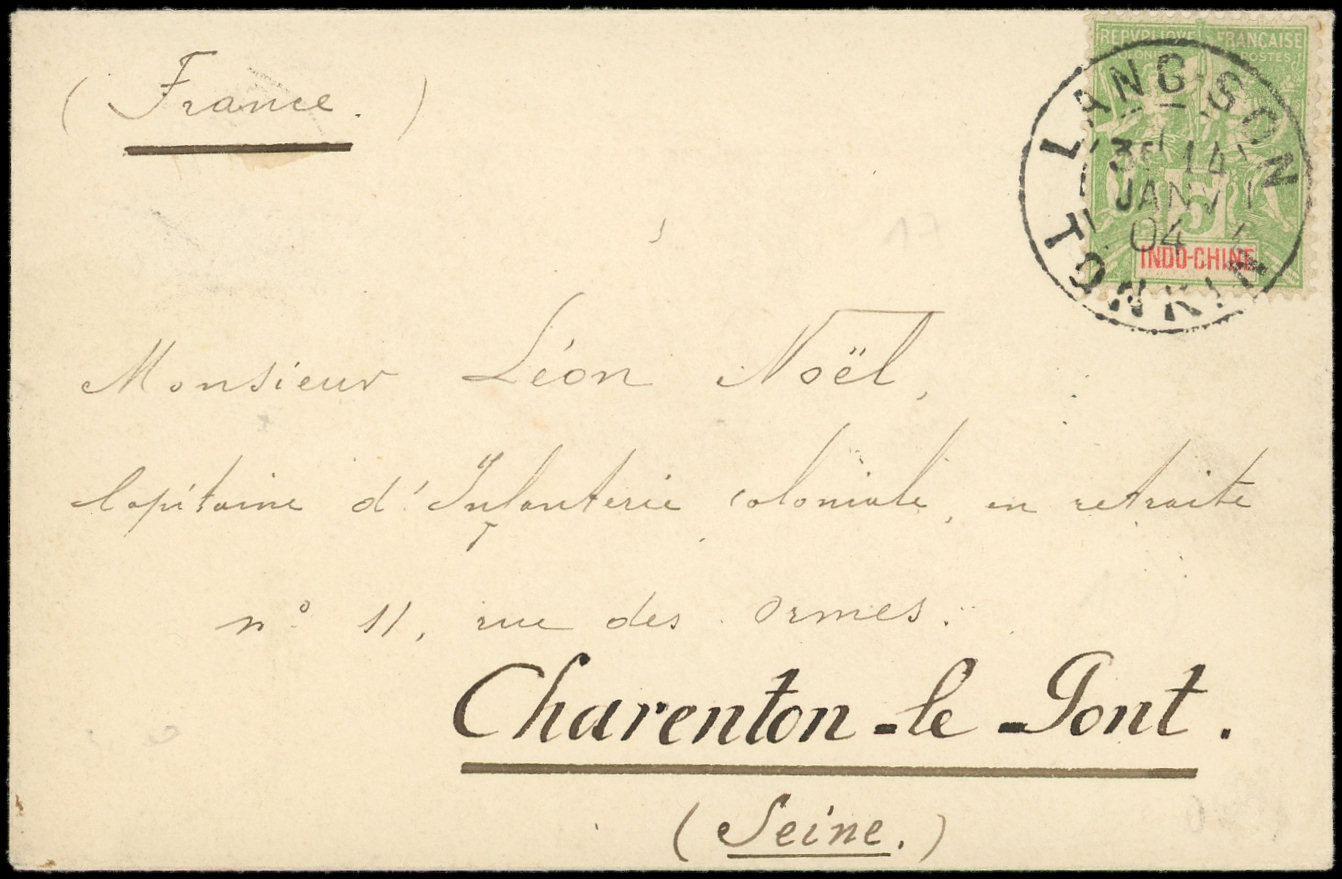 ( France. )
REPVBLIQUE FRANÇAISE
COLONIES POSTES
LANG-SON
3E 14
JANV
04
5
INDO-CHINE
TONKIN
Monsieur Léon Noël,
Capitaine d'Infanterie coloniale, en retraite
n° 11, rue des Ormes.
Charenton-le-Pont.
(Seine.)